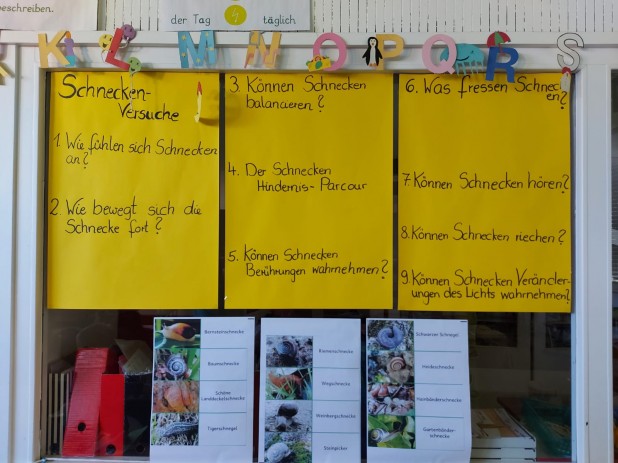 beschreiben.
der Tag täglich
K L M N O P Q R S
Schnecken-
Versuche
1. Wie fühlen sich Schnecken
an?
2. Wie bewegt sich die
Schnecke fort?
3. Können Schnecken
balancieren?
4. Der Schnecken
Hindernis-Parcour
5. Können Schnecken
Berührungen wahrnehmen?
6. Was fressen Schneck
en?
7. Können Schnecken hören?
8. Können Schnecken riechen?
9. Können Schnecken Veränder-
ungen des Lichts wahrnehmen?
Bernsteinschnecke
Baumschnecke
Schöne
Landdeckelschnecke
Tigerschnegel
Riemenschnecke
Weinbergschnecke
Steinpicker
Schwarzer Schnegel
Heideschnecke
Hainbänderschnecke
Gartenbänder-
schnecke